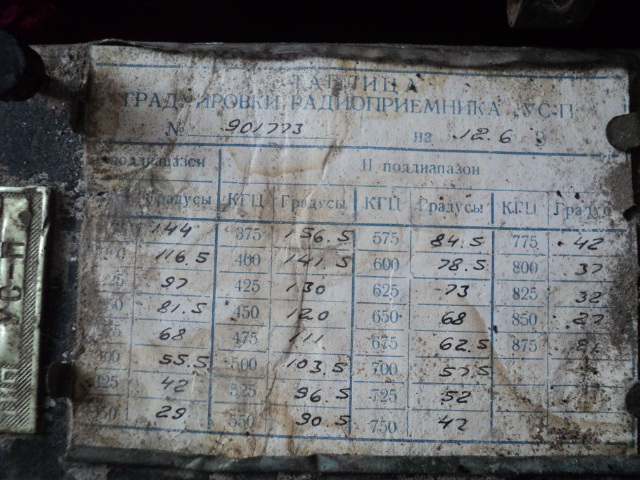 ТАБЛИЦА
ГРАДУИРОВКИ РАДИОПРИЕМНИКА УС-П
№ 901773 на 12.6 В
поддиапазон II поддиапазон
Градусы КГЦ Градусы КГЦ Градусы КГЦ Градус
144 375 156.5 575 84.5 775 42
116.5 400 141.5 600 78.5 800 37
97 425 130 625 73 825 32
81.5 450 120 650 68 850 27
68 475 111 675 62.5 875
55.5 500 103.5 700 57.5
42 525 96.5 725 52
29 550 90.5 750 47
УС-П
ТИП